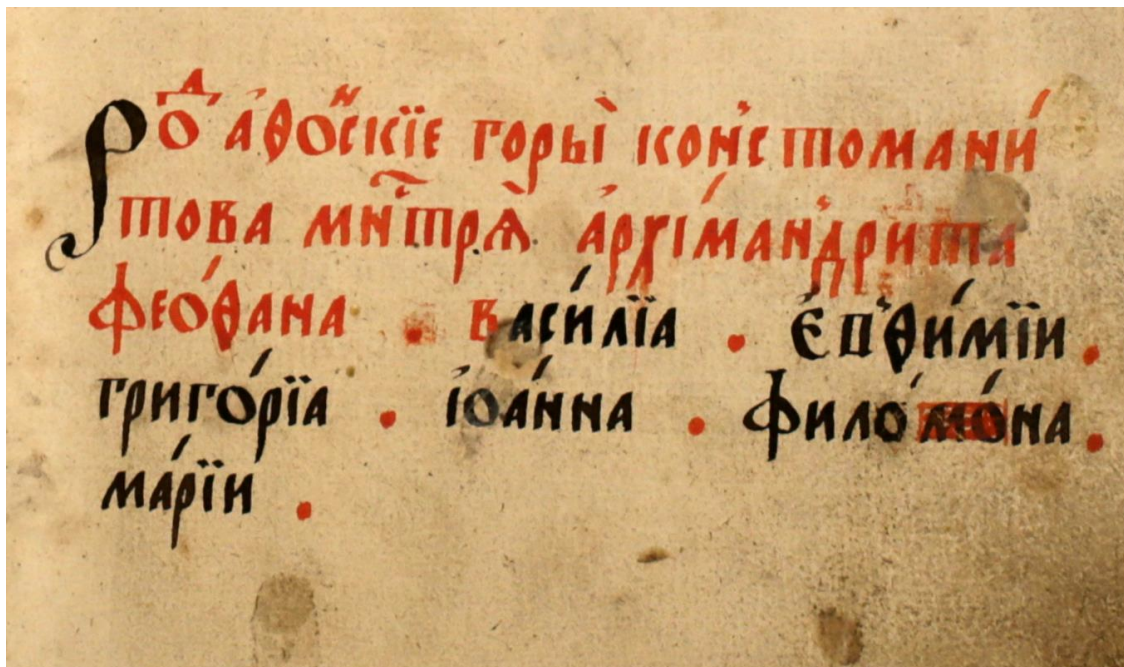 Роⷣ а҆ѳоⷩ҇скїе горы̀ кон҆стомани́
това мн҃трѧ̀ а҆рхїма́нд҆рита
феѻ́ѳана . васи́лїа . є҆п҆ѳи́мїи .
григо́рїа . і҆оа́нна . филомо́на .
ма́рїи .